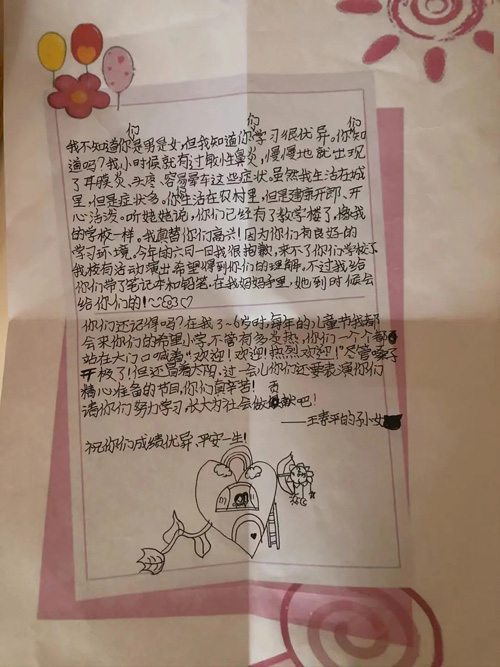 我不知道你们是男是女,但我知道你们学习很优异。你们知
道吗?我小时候就有过敏性鼻炎,慢慢地就出现
了耳膜炎、头疼、容易晕车这些症状。虽然我生活在城
里,但是症状多。你们生活在农村里,但是健康开朗、开
心活泼。听姥姥说,你们已经有了教学楼了,像我
的学校一样。我真替你们高兴!因为你们有良好的
学习环境。今年的六月一日我很抱歉,来不了你们学校了
我校有活动演出希望得到你们的理解。不过我给
你们带了笔记本和铅笔。在我妈妈手里,她到时候会
给你们的!
你们还记得吗?在我3~6岁时,每年的儿童节我都
会来你们的希望小学,不管有多炎热,你们一个个都
站在大门口喊着"欢迎!欢迎!热烈欢迎!"尽管嗓子
极了!但还冒着太阳,过一会儿你们还要表演你们
精心准备的节目,你们真辛苦!
请你们努力学习,长大为社会做贡献吧!
——王春平的孙女
祝你们成绩优异、平安一生!